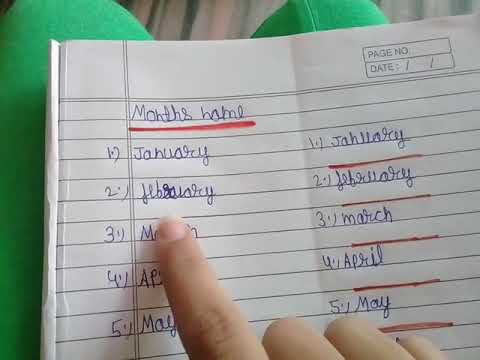 PAGE NO.
DATE: / /
Months name
1.) January
2.) february
3.)
4.)
5.) May
1.) January
2.) february
3.) march
4.) April
5.) May